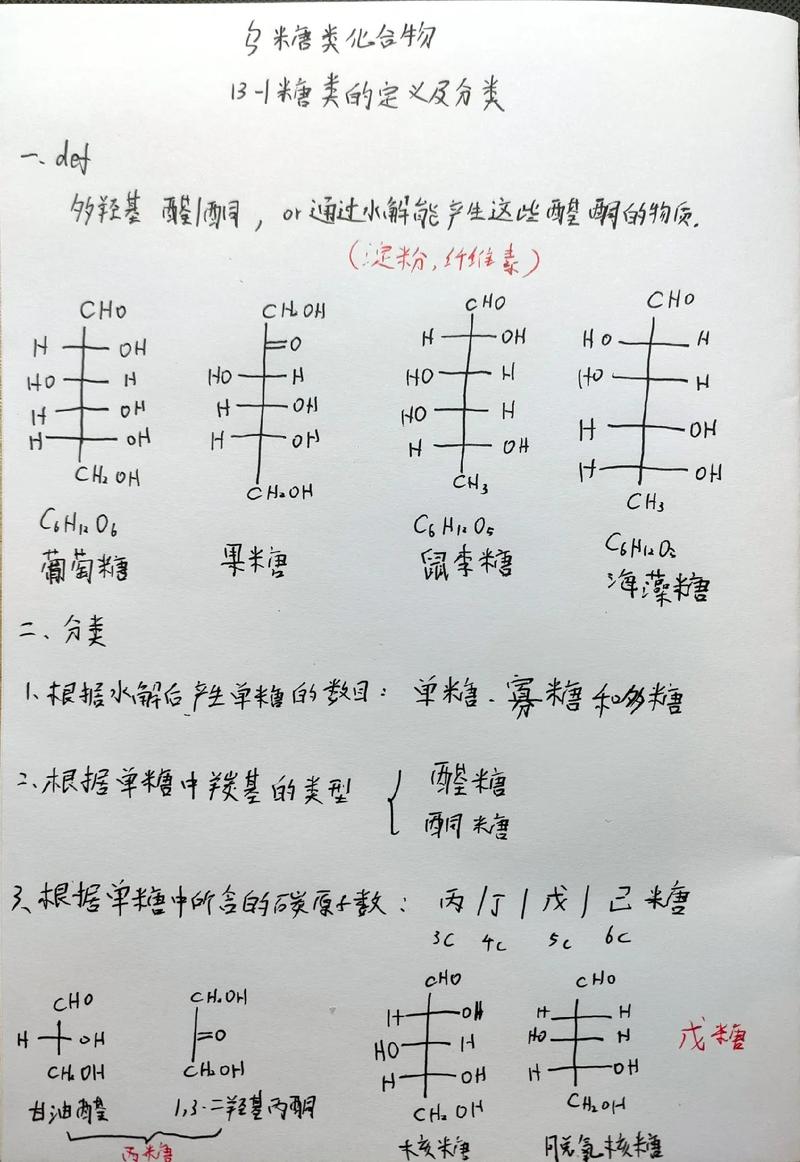 糖类化合物
13-1糖类的定义及分类
一、def
多羟基 醛/酮，or通过水解能产生这些醛酮的物质.
(淀粉,纤维素)
CHO CH₂OH CHO CHO
H OH =O H OH HO H
HO H HO H HO H HO H
H OH H OH HO H H OH
H OH H OH H OH H OH
CH₂OH CH₂OH CH₃ CH₃
C₆H₁₂O₆ C₆H₁₂O₅ C₆H₁₂O₅
葡萄糖 果糖 鼠李糖 海藻糖
二、分类
1、根据水解后产生单糖的数目：单糖、寡糖和多糖
二、根据单糖中羰基的类型 { 醛糖
酮糖
3、根据单糖中所含的碳原子数：丙/丁/戊/己糖
3C 4C 5C 6C
CHO CH₂OH CHO CHO
H OH =O H OH H H
HO H HO H
H OH H OH
CH₂OH CH₂OH CH₂OH CH₂OH
戊糖
甘油醛 1,3-二羟基丙酮 核糖 脱氧核糖
丙糖